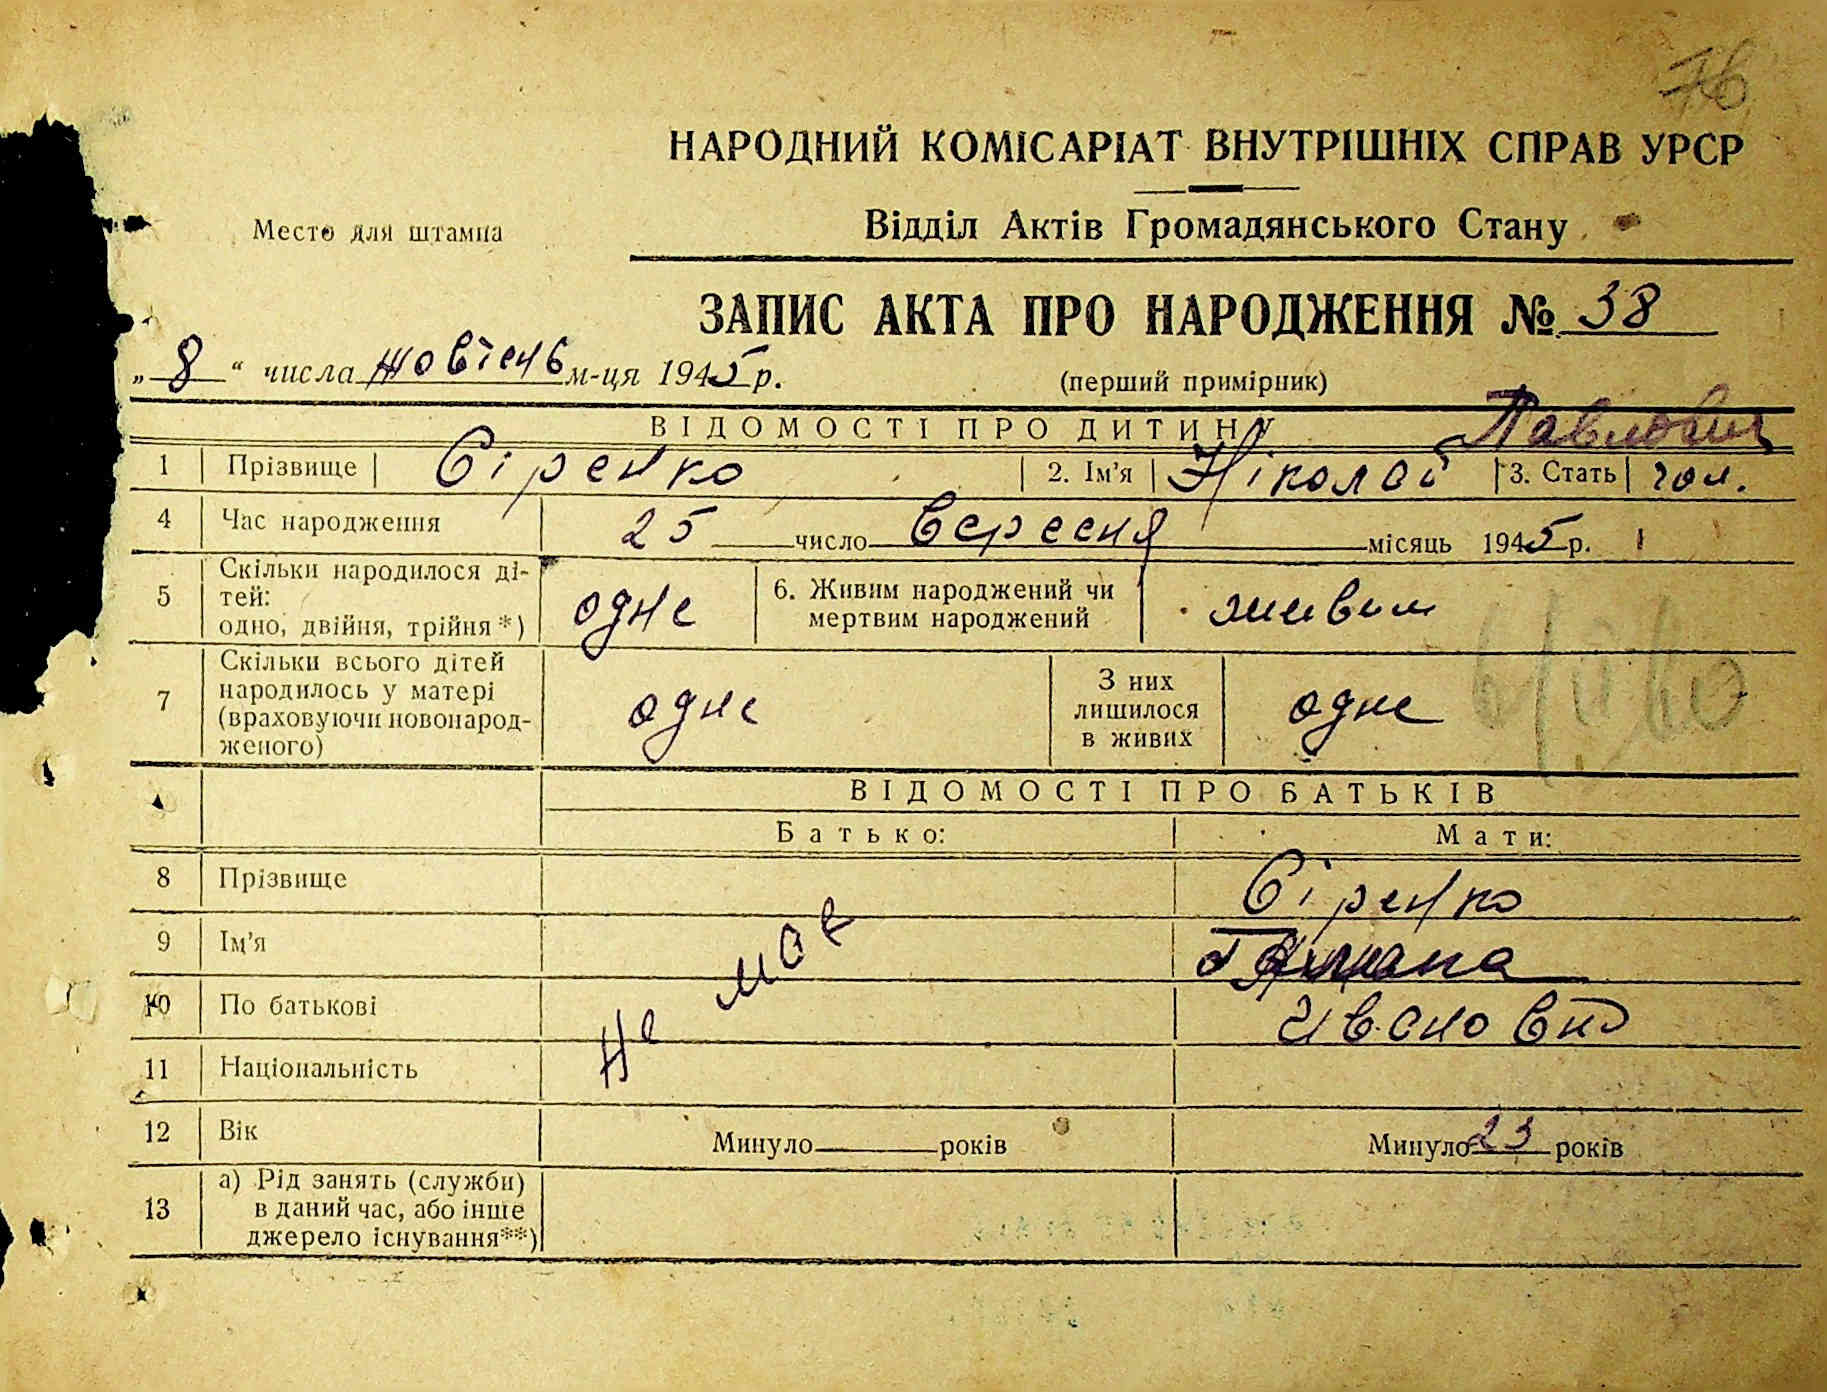 76
НАРОДНИЙ КОМІСАРІАТ ВНУТРІШНІХ СПРАВ УРСР
Место для штампа
Відділ Актів Громадянського Стану
ЗАПИС АКТА ПРО НАРОДЖЕННЯ № 38
„ 8 “ числа жовтень м-ця 1945 р.
(перший примірник)
ВІДОМОСТІ ПРО ДИТИНУ
Павлович
1 Прізвище Сіренко 2. Ім'я Ніколай 3. Стать чол.
4 Час народження 25 число Вересня місяць 1945 р.
5 Скільки народилося ді-
тей:
одно, двійня, трійня*) одне
6. Живим народжений чи
мертвим народжений живим
7 Скільки всього дітей
народилось у матері
(враховуючи новонарод-
женого) одне
З них
лишилося
в живих одне
ВІДОМОСТІ ПРО БАТЬКІВ
Батько: Мати:
8 Прізвище Сіренко
9 Ім'я
10 По батькові Ивановна
11 Національність
не має
12 Вік Минуло років Минуло 23 років
13 а) Рід занять (служби)
в даний час, або інше
джерело існування**)